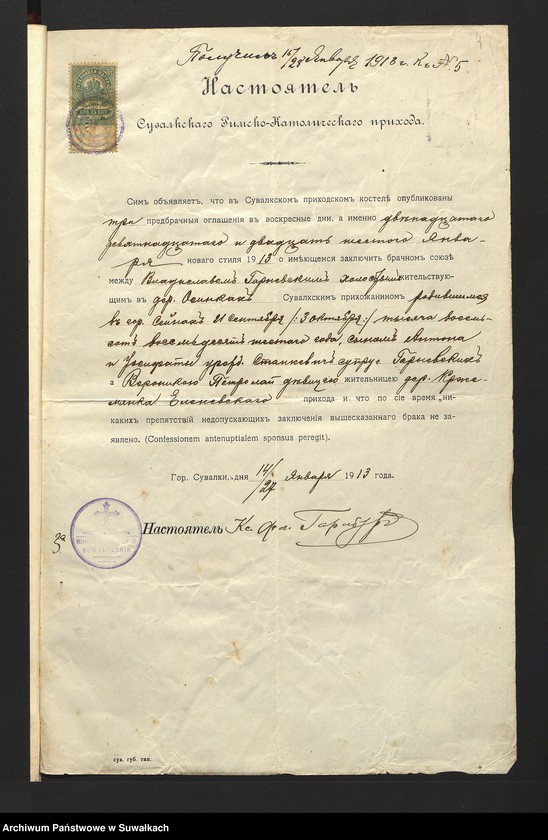 Получилъ 15/28 Января 1913 г. Къ № 5
4
Настоятель
Сувалкскаго Римско-Католическаго прихода.
Симъ объявляетъ, что въ Сувалкскомъ приходскомъ костелѣ опубликованы
три предбрачныя оглашенія въ воскресные дни, а именно двѣнадцатаго
девятнадцатаго и двадцать шестого Янва-
ря новаго стиля 1913 о имѣющемся заключить брачномъ союзѣ
между Владиславомъ Гарневскимъ холостымъ жительствую-
щимъ въ дер. Осинкахъ Сувалкскимъ прихожаниномъ родившимся
въ гор. Сейнахъ 21 Сентября /:3 октября:/ тысяча восемь-
сотъ восемьдесятъ шестого года, сыномъ Антона
и урожд. Станкевичъ супруг. Гарневскихъ
а Вероникою дѣвицею жительницею дер.
Еленевскаго прихода и что по сіе время „ни-
какихъ препятствій недопускающихъ заключенія вышесказаннаго брака не за-
явлено. (Confessionem antenuptialem sponsus peregit).
Гор. Сувалки, дня 14/27 Января 1913 года.
за Настоятель Кс.
сув. губ. тип.
Archiwum Państwowe w Suwałkach